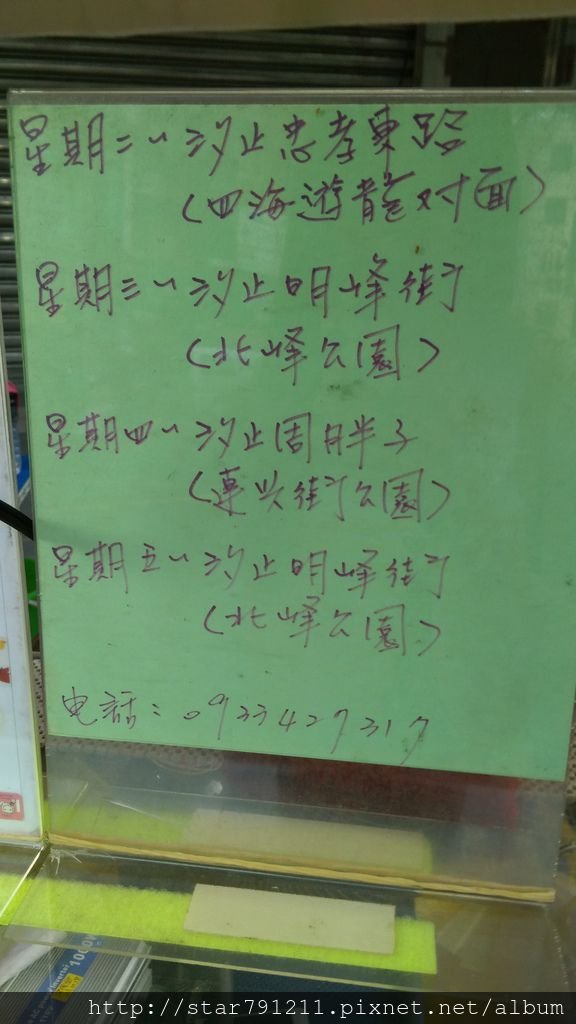 星期二~汐止忠孝東路
(四海遊龍对面)
星期三~汐止明峰街
(北峰公園)
星期四~汐止周胖子
(連兴街公園)
星期五~汐止明峰街
(北峰公園)
电話:0933427317
1000W
http://star791211.pixnet.net/album